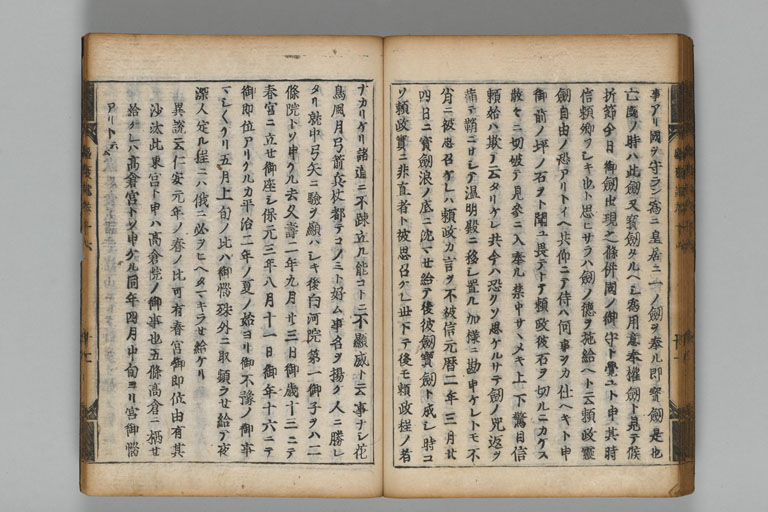 事アリ國ヲ守ラン爲ニ皇居ニ一ノ劔ヲ奉ル即寳劔是也
亡座ノ時ハ此劔又寳劔タルヘシ爲用意奉權劔ト見テ候
折節今日御劔出現之條併國ノ御守ト覺ユト申其時
信頼卿ヲシキ也ト思ヒサラハ劔ノ德ヲ施給ヘト云頼政靈
劔自由ノ恐アリトイヘ共仰ニテ侍ハ何事ヲカ仕ヘキト申
御前ノ坪ノ石ヲ
頼政彼石ヲ切ルニカケス
散々ニ切破テ見參ニ入奉ル集中サヽメキ上下驚目信
頼始ハ欺テ云タリケレ共今ハ恐クソ思ケルサテ劔ノ咒返ヲ
鞘ニサシテ温明殿ニ移シ置ル加樣ニ勘申ケレトモ不
肖ニ被思召ケレハ頼政カ言ヲ不被信元暦二年三月廿
四日ニ寳劔浪ノ底ニ沈マセ給テ後彼劔寳劔ト成シ時コ
ソ頼政實ニ非直者ト被思召ケレ世下テ後モ頼政程ノ者
ナカリケリ諸道ニ不疎立ル能コトニ不顯威ト云事ナシ花
鳥風月弓箭兵杖都テコノミト好ム事名ヲ揚ク人ニ勝レ
タリ就中弓矢ニ驗ヲ顯ハシキ後白河院第一御子ヲハ二
條院トソ申ケル去久壽二年九月廿三日御歳十三ニテ
春宮ニ立セ御座シ保元三年八月十一日御年十六ニテ
御即位アリケルカ平治二年ノ夏ノ始ヨリ御不豫ノ御事
マシ〳〵ケリ五月上旬ノ比ハ御惱殊外ニ取頻ラセ給テ夜
深人定ル程ニハ俄ニ必ヲヒヘタマキラセ給ケリ
異説云仁安元年ノ春ノ比可有春宮御即位由有其
沙汰此東宮ト申ハ高倉院ノ御事也五條高倉ニ栖セ
給ケレハ高倉宮トソ申ケル同年四月中旬ヨリ宮御惱
アリト云々